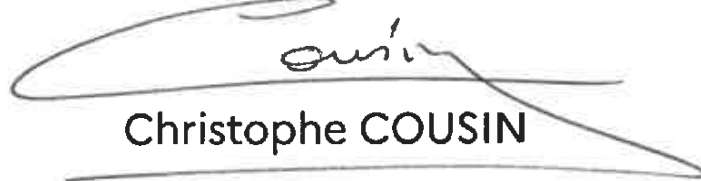 Cousin
Christophe COUSIN